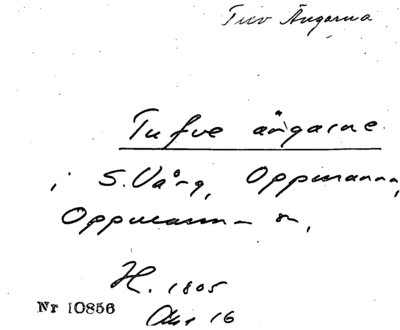 Tuv Ängarna
Tufve ängarne
i S. Vång, Oppmanna,
Oppmanna sn,
H. 1805
Akt 16
Nr 10856